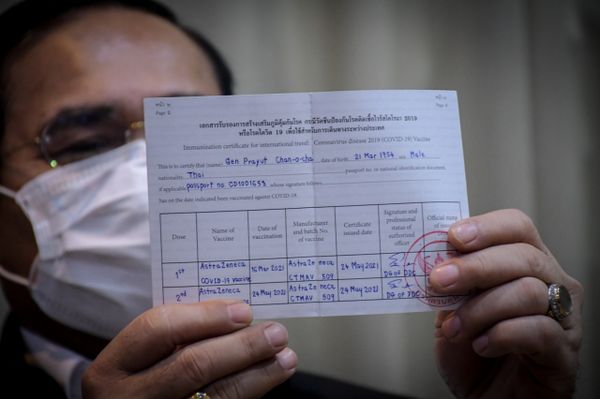 หน้า ๒
หน้า ๓
Page 2
Page 3
เอกสารรับรองการสร้างเสริมภูมิคุ้มกันโรค กรณีวัคซีนป้องกันโรคติดเชื้อไวรัสโคโรนา 2019
หรือโรคโควิด 19 เพื่อใช้สำหรับการเดินทางระหว่างประเทศ
Immunization certificate for international travel: Coronavirus disease 2019 (COVID-19) Vaccine
This is to certify that (name) Gen Prayut Chan-o-cha date of birth 21 Mar 1954 sex Male
nationality Thai passport no. or national identification document,
if applicable passport no. whose signature follows
has on the date indicated been vaccinated against COVID-19
Dose Name of Vaccine Date of vaccination Manufacturer and batch No. of vaccine Certificate issued date Signature and professional status of authorized officer Official stamp of
1st AstraZeneca COVID-19 vaccine 16 Mar 2021 AstraZeneca CTMAV 509 24 May 2021 DG of DDC
2nd AstraZeneca 24 May 2021 AstraZeneca CTMAV 509 24 May 2021 DG of DDC